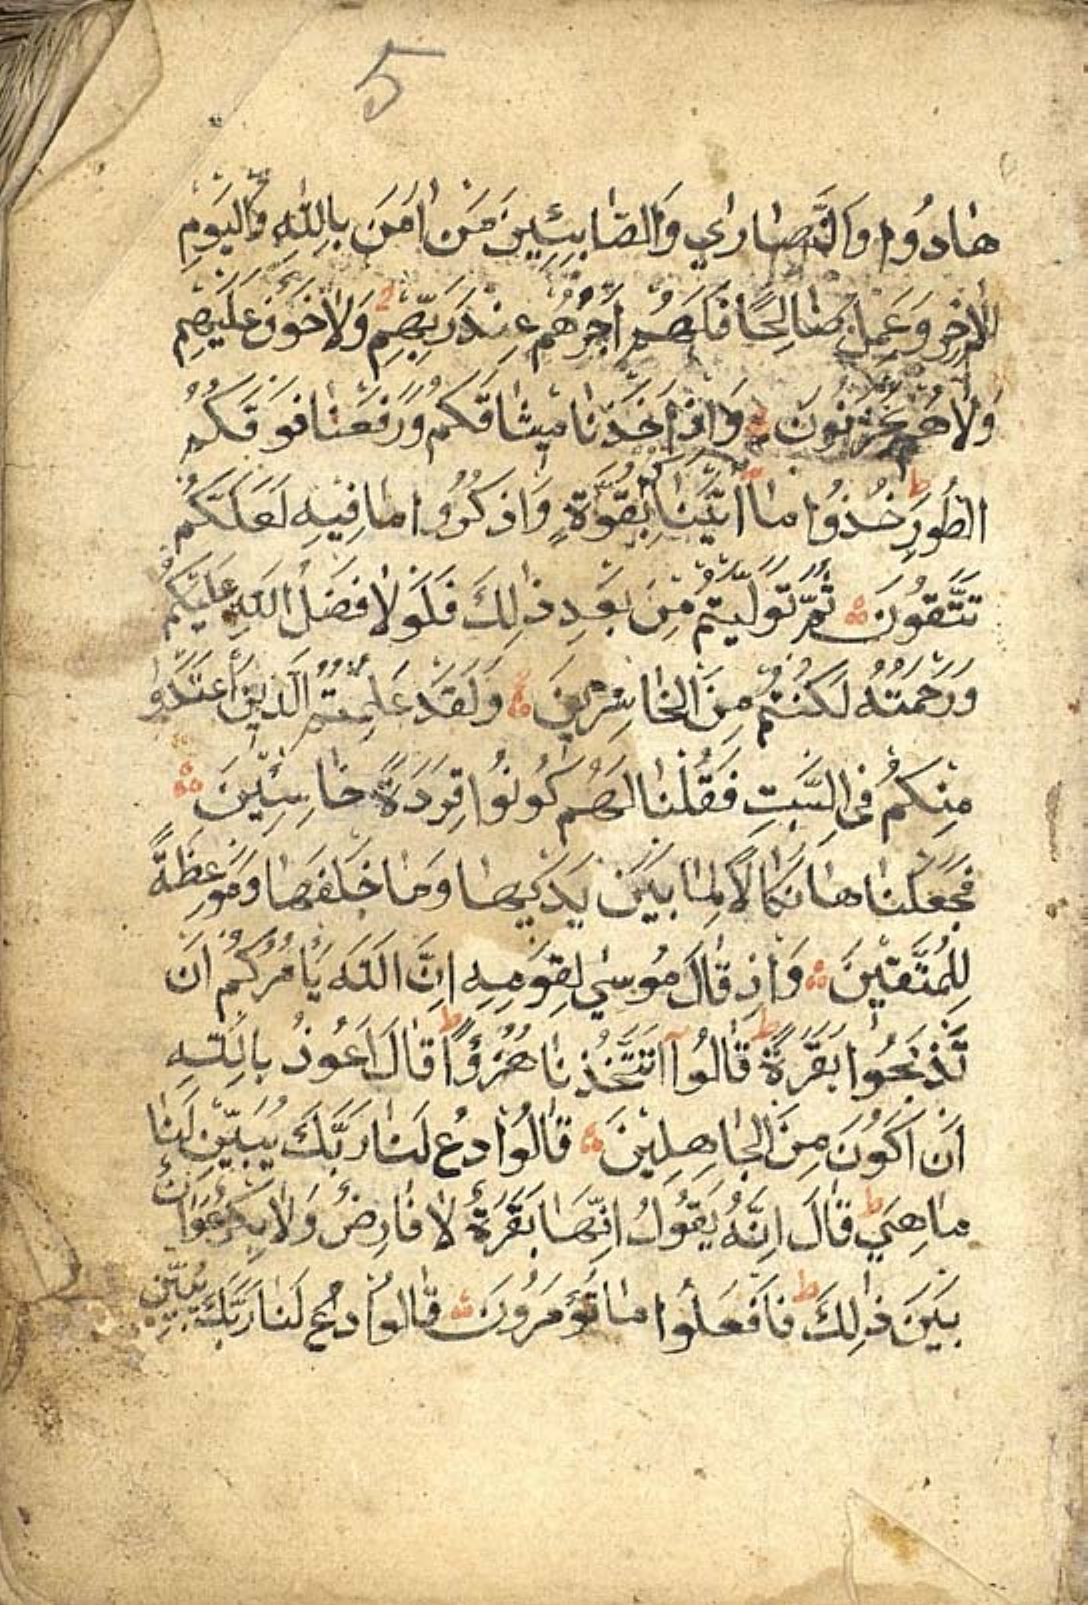 5
هَادُوا وَالنَّصَارٰي وَالصَّابِئِينَ مَنْ اٰمَنَ بِاللّٰهِ وَالْيَوْمِ
الْاٰخِرِ وَعَمِلَ صَالِحًا فَلَهُمْ اَجْرُهُمْ عِنْدَ رَبِّهِمْ وَلَا خَوْفٌ عَلَيْهِمْ
وَلَا هُمْ يَحْزَنُونَ وَاِذْ اَخَذْنَا مِيثَاقَكُمْ وَرَفَعْنَا فَوْقَكُمُ
الطُّورَ ط خُذُوا مَا اٰتَيْنَاكُمْ بِقُوَّةٍ وَاذْكُرُوا مَا فِيهِ لَعَلَّكُمْ
تَتَّقُونَ ثُمَّ تَوَلَّيْتُمْ مِنْ بَعْدِ ذٰلِكَ فَلَوْلَا فَضْلُ اللّٰهِ عَلَيْكُمْ
وَرَحْمَتُهُ لَكُنْتُمْ مِنَ الْخَاسِرِينَ وَلَقَدْ عَلِمْتُمُ الَّذِينَ اعْتَدَوْا
مِنْكُمْ فِي السَّبْتِ فَقُلْنَا لَهُمْ كُونُوا قِرَدَةً خَاسِئِينَ
فَجَعَلْنَاهَا نَكَالًا لِمَا بَيْنَ يَدَيْهَا وَمَا خَلْفَهَا وَمَوْعِظَةً
لِلْمُتَّقِينَ وَاِذْ قَالَ مُوسٰي لِقَوْمِهِ اِنَّ اللّٰهَ يَأْمُرُكُمْ اَنْ
تَذْبَحُوا بَقَرَةً ط قَالُوا اَتَتَّخِذُنَا هُزُؤًا ط قَالَ اَعُوذُ بِاللّٰهِ
اَنْ اَكُونَ مِنَ الْجَاهِلِينَ قَالُوا ادْعُ لَنَا رَبَّكَ يُبَيِّنْ لَنَا
مَا هِيَ ط قَالَ اِنَّهُ يَقُولُ اِنَّهَا بَقَرَةٌ لَا فَارِضٌ وَلَا بِكْرٌ عَوَانٌ
بَيْنَ ذٰلِكَ ط فَافْعَلُوا مَا تُؤْمَرُونَ قَالُوا ادْعُ لَنَا رَبَّكَ يُبَيِّنْ